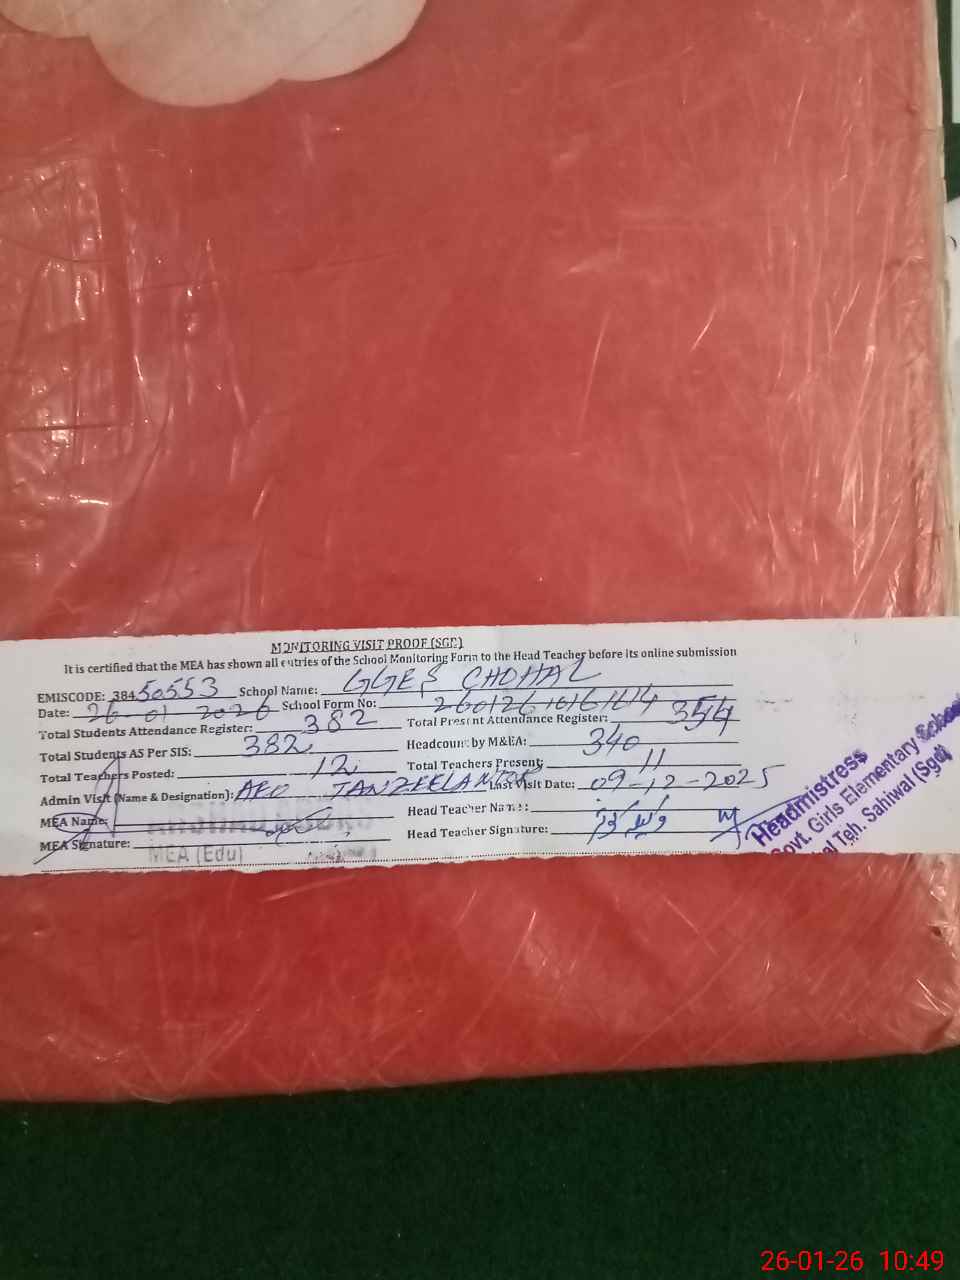 MONITORING VISIT PROOF (SGD)
It is certified that the MEA has shown all entries of the School Monitoring Form to the Head Teacher before its online submission
EMISCODE: 38450553 School Name: GGES CHOHAL
Date: 26-01-2026 School Form No:
Total Students Attendance Register: 382 Total Present Attendance Register: 354
Total Students AS Per SIS: 382 Headcount by M&EA: 340
Total Teachers Posted: 12 Total Teachers Present: 11
Admin Visit (Name & Designation): AEO TANZEELA Last Visit Date: 09-12-2025
MEA Name: Head Teacher Name:
MEA Signature: MEA (Edu) Head Teacher Signature:
Headmistress
Govt. Girls Elementary School
Teh. Sahiwal (Sgd)
26-01-26 10:49